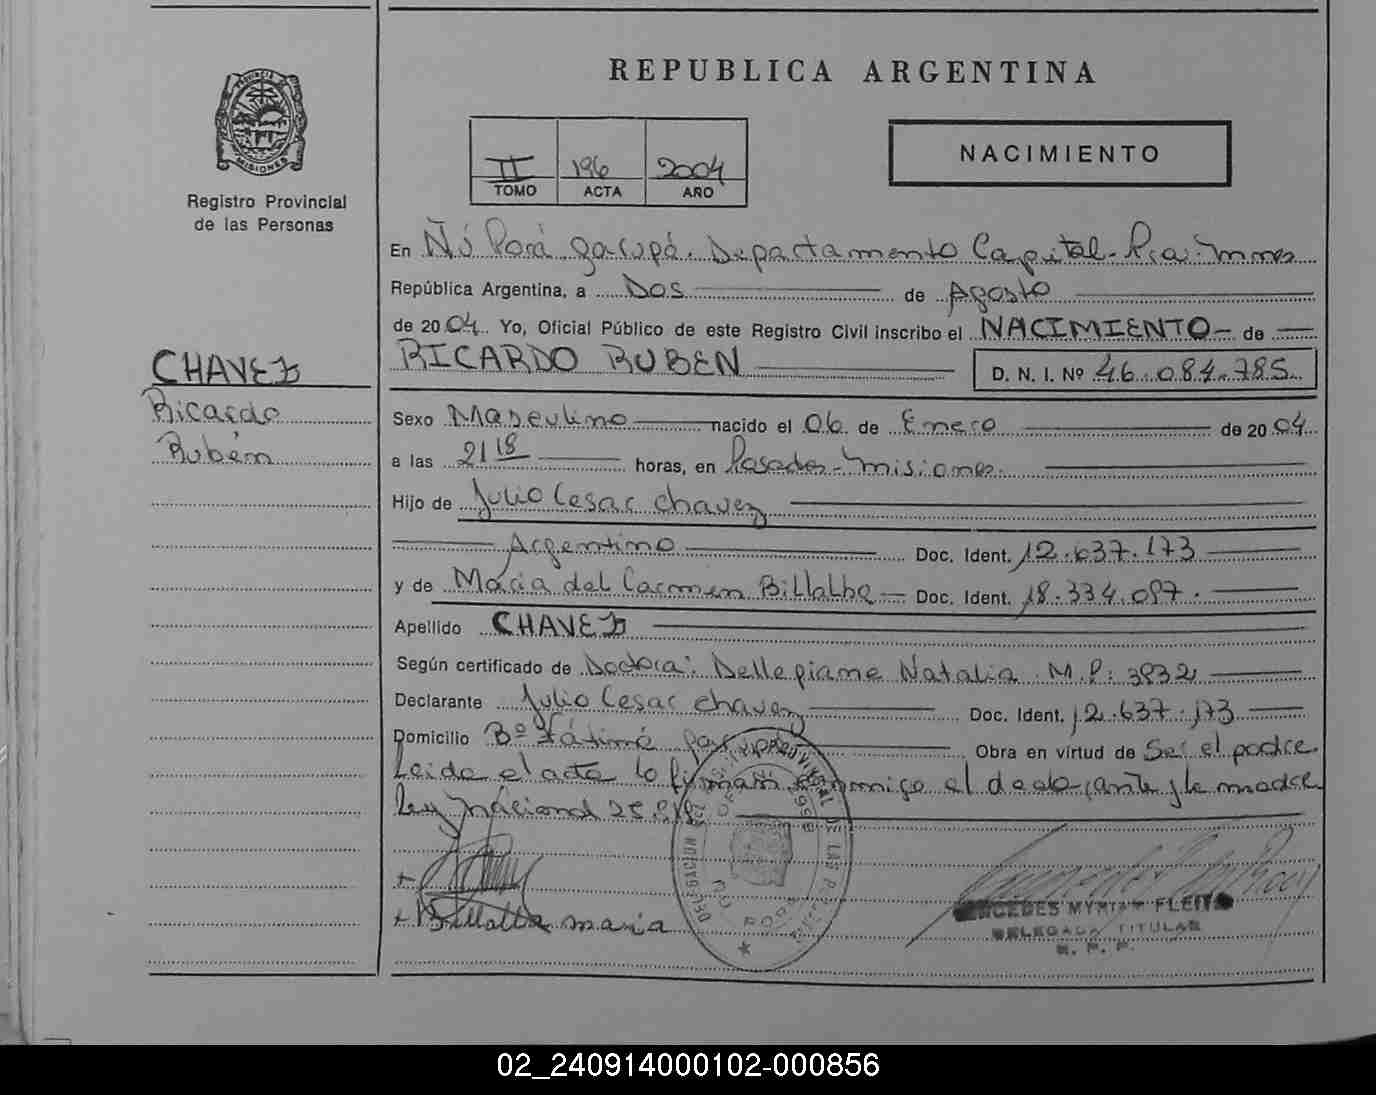 REPUBLICA ARGENTINA
PROVINCIA DE
MISIONES
Registro Provincial
de las Personas
II 196 2004
TOMO ACTA AÑO
NACIMIENTO
En Ñú Porá Garupá. Departamento Capital - Pcia: Mnes
República Argentina, a Dos de Agosto
de 2004 Yo, Oficial Público de este Registro Civil inscribo el NACIMIENTO de
RICARDO RUBEN D. N. I. Nº 46.084.785
CHAVEZ
Ricardo
Rubén
Sexo Masculino nacido el 06 de Enero de 2004
a las 21 18 horas, en Posadas - Misiones.
Hijo de Julio Cesar Chavez
Argentino Doc. Ident. 12.637.173
y de Maria del Carmen Billalba Doc. Ident. 18.334.097.
Apellido CHAVEZ
Según certificado de Doctora: Dellepiane Natalia M.P: 3832
Declarante Julio Cesar Chavez Doc. Ident. 12.637.173
Domicilio Bº Fátima Garupá Obra en virtud de Ser el padre
Leida el acta lo firman conmigo el declarante y la madre
Ley Nacional
+
+ Billalba maria
DELEGACION
ÑU PORA
MERCEDES MYRIAM FLEITA
DELEGADA TITULAR
R. P. P.
02_240914000102-000856